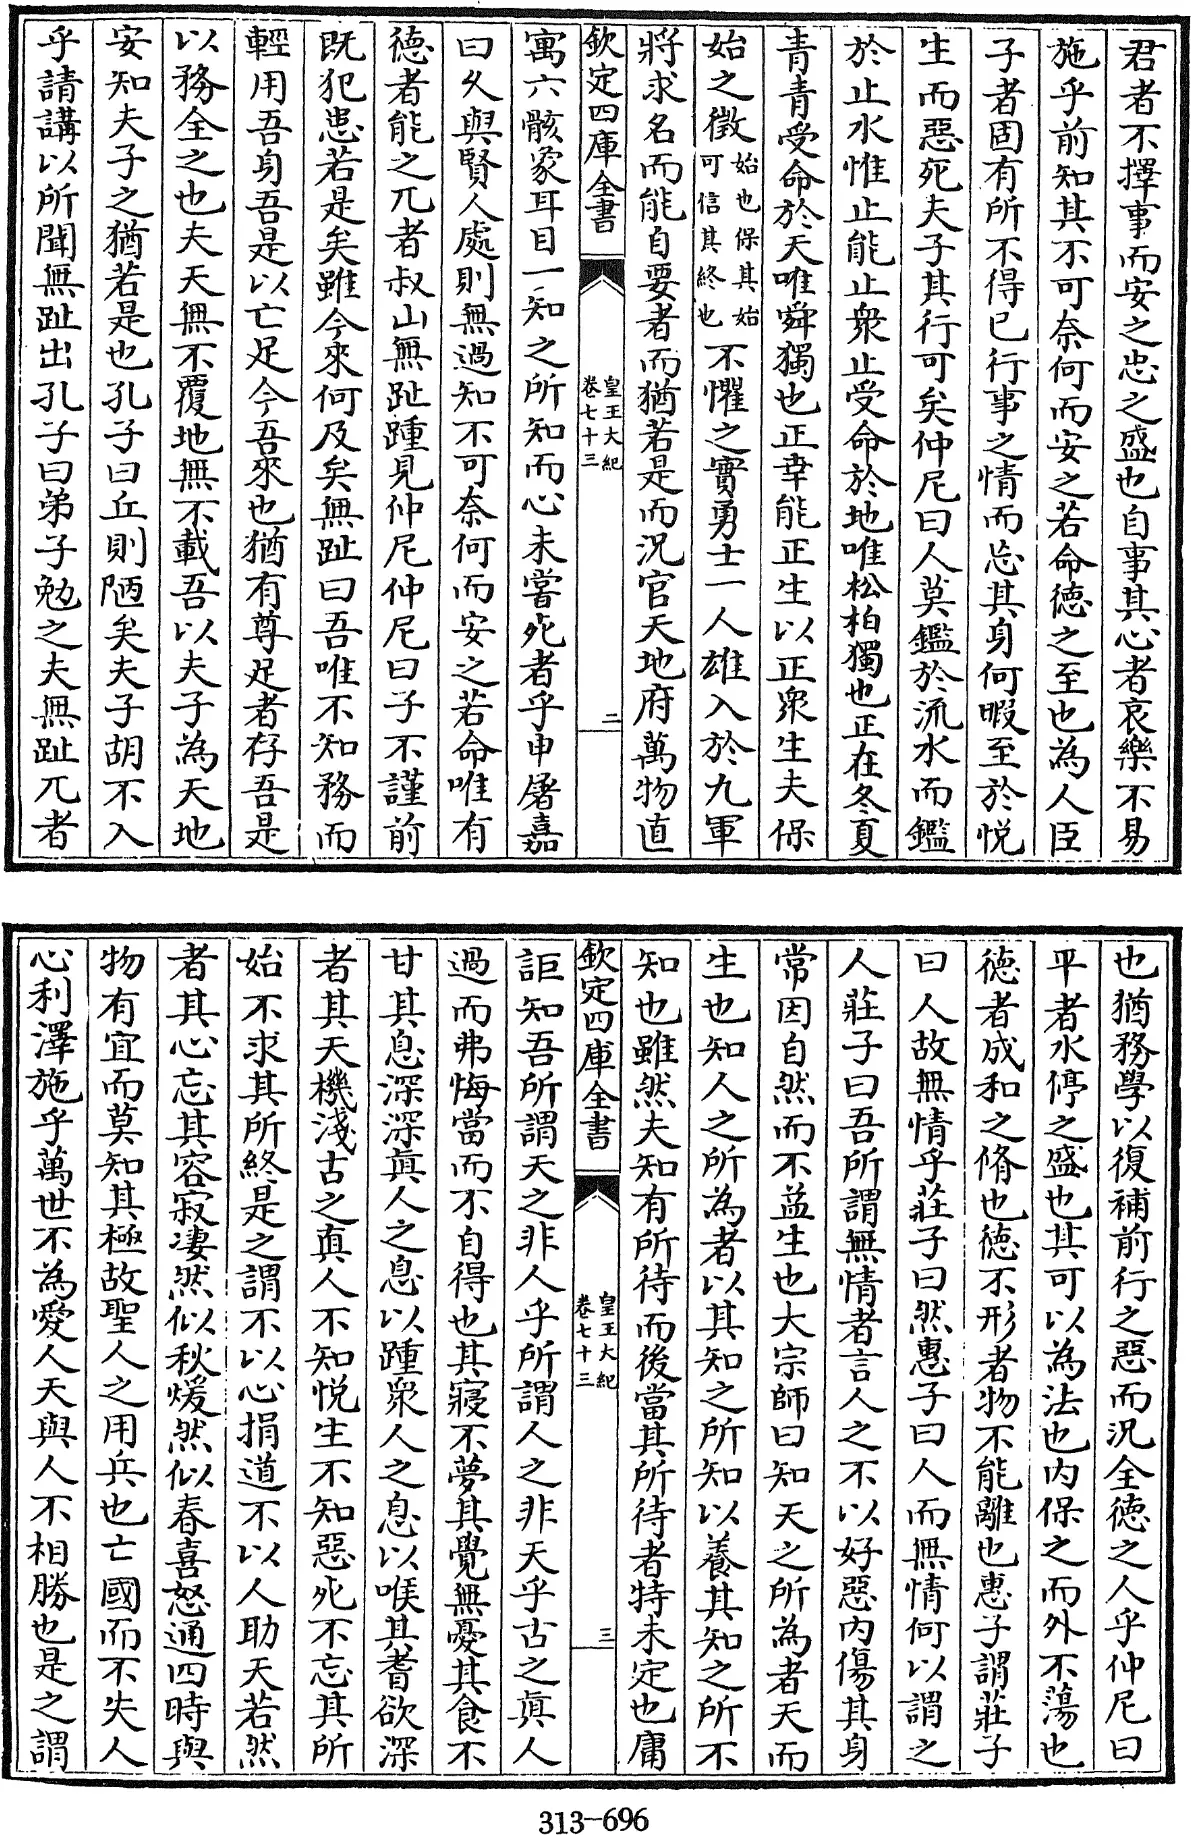 君者不擇事而安之忠之盛也自事其心者哀樂不易
施乎前知其不可奈何而安之若命德之至也為人臣
子者固有所不得已行事之情而忘其身何暇至於悅
生而惡死夫子其行可矣仲尼曰人莫鑑於流水而鑑
於止水惟止能止衆止受命於地唯松柏獨也正在冬夏
青青受命於天唯舜獨也正幸能正生以正衆生夫保
始之徵始也保其始可信其終也不懼之實勇士一人雄入於九軍
將求名而能自要者而猶若是而況官天地府萬物直
欽定四庫全書
皇王大紀
卷七十三
二
寓六骸象耳目一知之所知而心未嘗死者乎申屠嘉
曰久與賢人處則無過知不可奈何而安之若命唯有
德者能之兀者叔山無趾踵見仲尼仲尼曰子不謹前
既犯患若是矣雖今來何及矣無趾曰吾唯不知務而
輕用吾身吾是以亡足今吾來也猶有尊足者存吾是
以務全之也夫天無不覆地無不載吾以夫子為天地
安知夫子之猶若是也孔子曰丘則陋矣夫子胡不入
乎請講以所聞無趾出孔子曰弟子勉之夫無趾兀者
也猶務學以復補前行之惡而況全德之人乎仲尼曰
平者水停之盛也其可以為法也内保之而外不蕩也
德者成和之脩也德不形者物不能離也惠子謂莊子
曰人故無情乎莊子曰然惠子曰人而無情何以謂之
人莊子曰吾所謂無情者言人之不以好惡内傷其身
常因自然而不益生也大宗師曰知天之所為者天而
生也知人之所為者以其知之所知以養其知之所不
知也雖然夫知有所待而後當其所待者特未定也庸
欽定四庫全書
皇王大紀
卷七十三
三
詎知吾所謂天之非人乎所謂人之非天乎古之真人
過而弗悔當而不自得也其寢不夢其覺無憂其食不
甘其息深深真人之息以踵衆人之息以喉其耆欲深
者其天機淺古之真人不知悅生不知惡死不忘其所
始不求其所終是之謂不以心捐道不以人助天若然
者其心忘其容寂凄然似秋煖然似春喜怒通四時與
物有宜而莫知其極故聖人之用兵也亡國而不失人
心利澤施乎萬世不為愛人天與人不相勝也是之謂
313-696